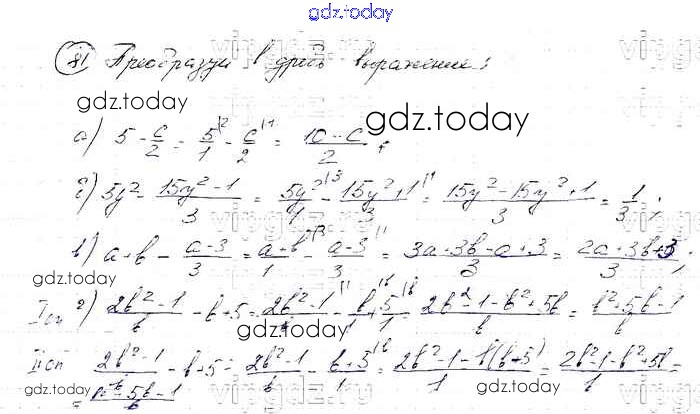 gdz.today
81 Преобразуй в дробь выражение:
gdz.today
gdz.today
а) 5 - c/2 = 5/1 |2 - c/2 |1 = 10 - c/2 ;
б) 5y² - 15y² - 1/3 = 5y²/1 |3 - 15y² + 1/3 |1 = 15y² - 15y² + 1/3 = 1/3 ;
gdz.today
в) a + b - a - 3/3 = a + b/1 |3 - a - 3/3 |1 = 3a + 3b - a + 3/3 = 2a + 3b + 3/3 ;
gdz.today
I сп г) 2b² - 1/b - b + 5 = 2b² - 1 |1 - b + 5 |b = 2b² - 1 - b² + 5b/b = b² + 5b - 1/b
gdz.today
II сп 2b² - 1/b - b + 5 = 2b² - 1/b - b + 5/1 |b = 2b² - 1 - (b + 5)/1 = 2b² - 1 - b² + 5b/1 =
= 5b - 1
gdz.today